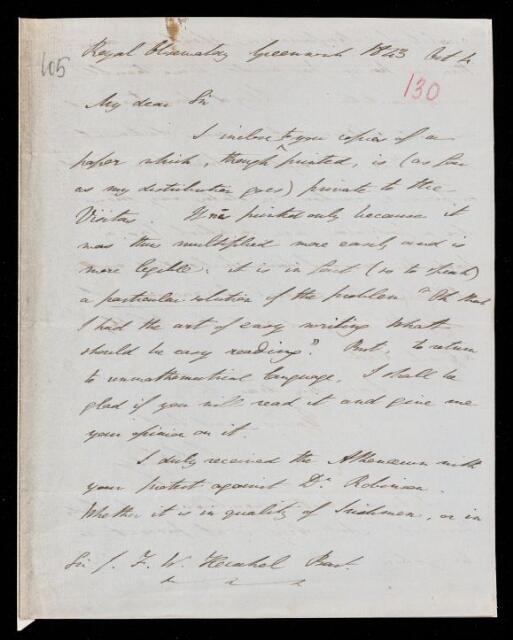 Royal Observatory Greenwich 1843 Oct 4
105
130
My dear Sir
I inclose to you copies of a
paper which, though printed, is (as far
as my distribution goes) private to the
Visitors. It was printed only because it
was thus multiplied more easily and is
more legible: it is in fact (so to speak)
a particular solution of the problem "Oh that
I had the art of easy writing What
should be easy reading". But, to return
to unmathematical language, I shall be
glad if you will read it and give me
your opinion on it.
I duly received the Athenæum with
your protest against Dr. Robinson.
Whether it is in quality of Irishmen, or in
Sir J. F. W. Herschel Bart.